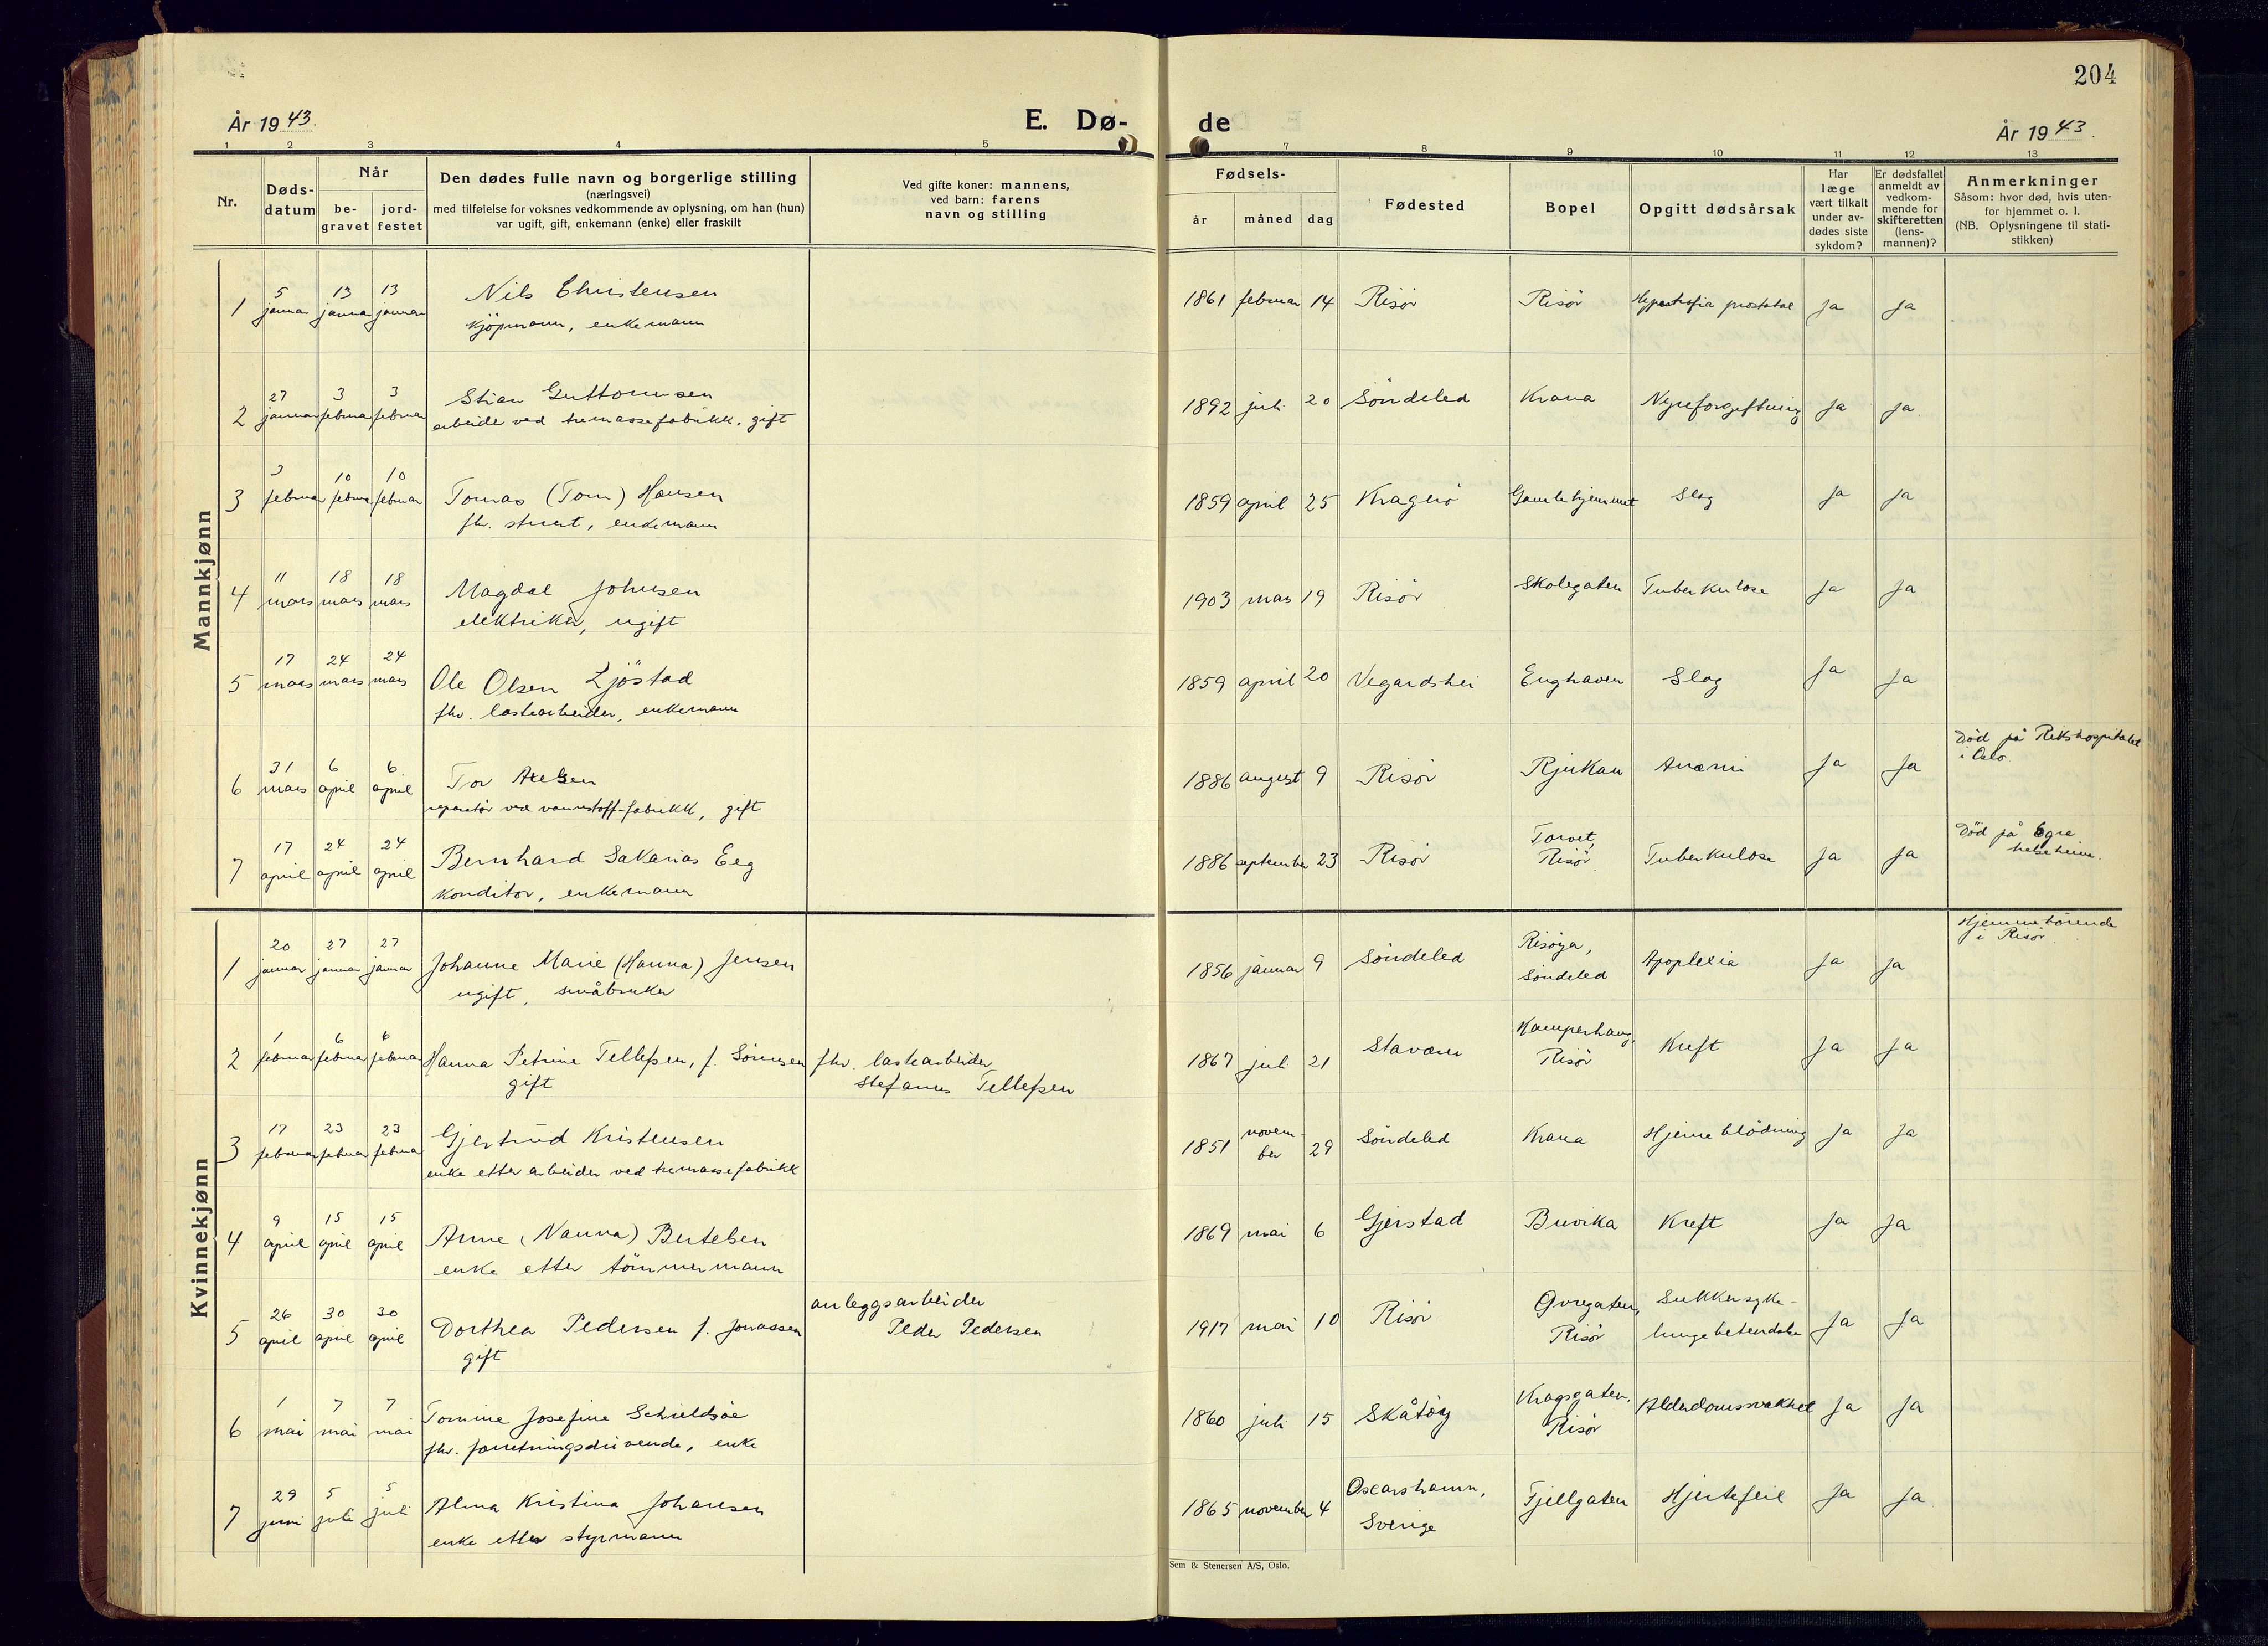 204
År 1943.
E. Dø-
de
År 1943.
1 2 3 4 5 7 8 9 10 11 12 13
Nr.
Døds-
datum
Når
be-
gravet
jord-
festet
Den dødes fulle navn og borgerlige stilling
(næringsvei)
med tilføielse for voksnes vedkommende av oplysning, om han (hun)
var ugift, gift, enkemann (enke) eller fraskilt
Ved gifte koner: mannens,
ved barn: farens
navn og stilling
Fødsels-
år måned dag
Fødested
Bopel
Opgitt dødsårsak
Har
læge
vært tilkalt
under av-
dødes siste
sykdom?
Er dødsfallet
anmeldt av
vedkom-
mende for
skifteretten
(lens-
mannen)?
Anmerkninger
Såsom: hvor død, hvis uten-
for hjemmet o. l.
(NB. Oplysningene til stati-
stikken)
Mannkjønn
1 5 januar 13 januar 13 januar Nils Christensen
kjöpmann, enkemann
1861 februar 14 Risör Risör prostatae Ja Ja
2 27 januar 3 februar 3 februar Stian Guttormsen
arbeider ved tremassefabrikk, gift
1892 juli 20 Söndeled Krana Nyreforgiftning Ja Ja
3 3 februar 10 februar 10 februar Tomas (Tom) Hansen
fhv. stuert, enkemann
1859 april 25 Kragerö Gamlehjemmet Slag Ja Ja
4 11 mars 18 mars 18 mars Magdal Johnsen
elektriker, ugift
1903 mars 19 Risör Skolegaten Tuberkulose Ja Ja
5 17 mars 24 mars 24 mars Ole Olsen Ljöstad
fhv. lastearbeider, enkemann
1859 april 20 Vegardshei Enghaven Slag Ja Ja
6 31 mars 6 april 6 april Tor Axelsen
reparatör ved vannstoff-fabrikk, gift
1886 august 9 Risör Rjukan Anæmi Ja Ja
Död på Rikshospitalet
i Oslo.
7 17 april 24 april 24 april Bernhard Sakarias Eeg
konditor, enkemann
1886 september 23 Risör Torvet, Risör. Tuberkulose Ja Ja
Död på Egra
helseheim.
Kvinnekjønn
1 20 januar 27 januar 27 januar Johanne Marie (Hanna) Jensen
ugift, småbruker
1856 januar 9 Söndeled Risöya, Söndeled Apoplexia Ja Ja
Hjemmehörende
i Risör.
2 1 februar 6 februar 6 februar Hanna Petrine Tellefsen, f. Sörensen
gift
fhv. lastearbeider
Stefanus Tellefsen
1867 juli 21 Stavern Kamperhaug, Risör Kreft Ja Ja
3 17 februar 23 februar 23 februar Gjertrud Kristensen
enke etter arbeider ved tremassefabrikk
1851 november 29 Söndeled Krana Hjerneblödning Ja Ja
4 9 april 15 april 15 april Anne (Nanna) Bertelsen
enke etter tömmermann
1869 mai 6 Gjerstad Buvika Kreft Ja Ja
5 26 april 30 april 30 april Dorthea Pedersen f. Jonassen
gift
anleggsarbeider
Peder Pedersen
1917 mai 10 Risör Övregaten, Risör Sukkersyke-
lungebetendelse Ja Ja
6 1 mai 7 mai 7 mai Tomine Josefine Schieldsöe
fhv. forretningsdrivende, enke
1860 juli 15 Skåtöy Kragsgaten, Risör Alderdomssvakhet Ja Ja
7 29 juni 5 juli 5 juli Alma Kristina Johansen
enke etter styrmann
1865 november 4 Oscarshamn, Sverige Fjellgaten Hjertefeil Ja Ja
Sem & Stenersen A/S, Oslo.